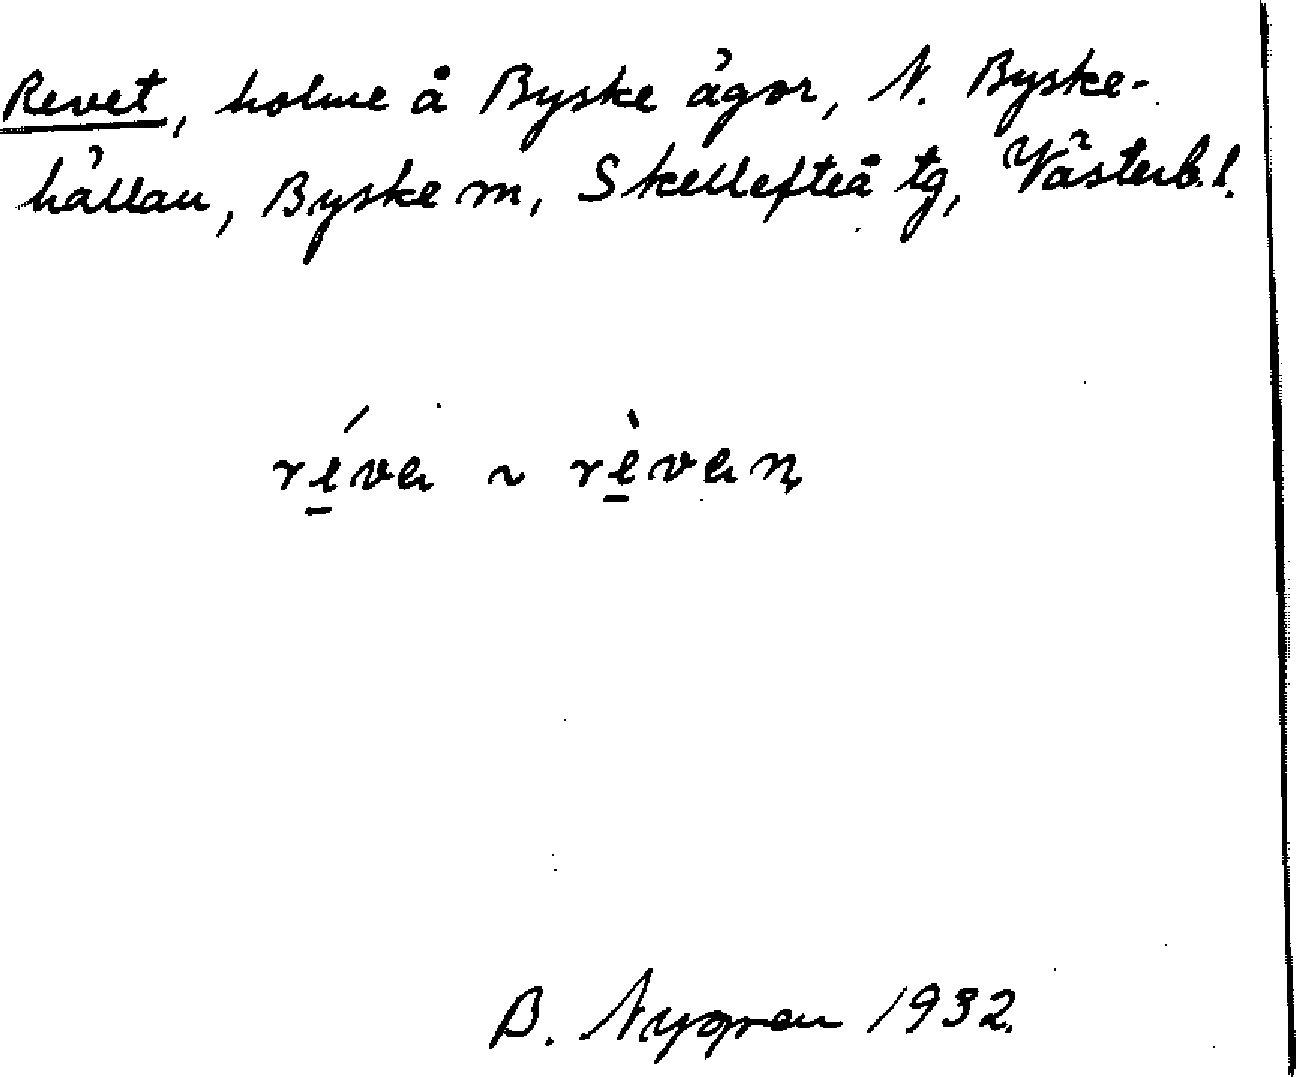 Revet, holme å Byske ägor, N. Byske-
hällan, Byske sn, Skellefteå tg, Västerb. l.
ré̲va ~ rè̲van
B. Nygren 1932.